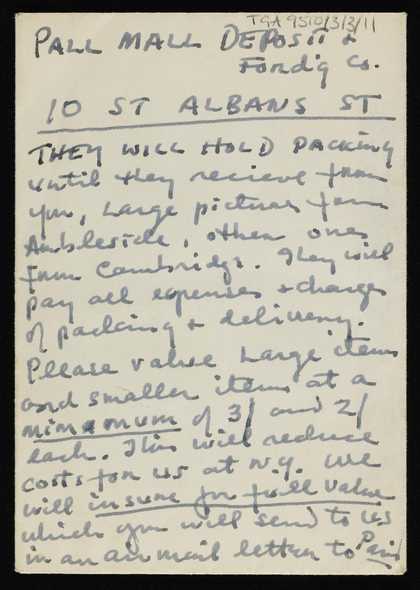 TGA 9510/3/3/11
PALL MALL DEPOSIT +
Ford'g Co.
10 ST ALBANS ST
THEY WILL HOLD PACKING
until they recieve from
you, Large pictures from
Ambleside, other ones
from Cambridge. They will
pay all expenses + charges
of packing + delivery.
Please value Large items
and smaller items at a
minimum of 3/ and 2/
each. This will reduce
costs for us at N.Y. We
will insure for full value
which you will send to us
in an air mail letter to Paris